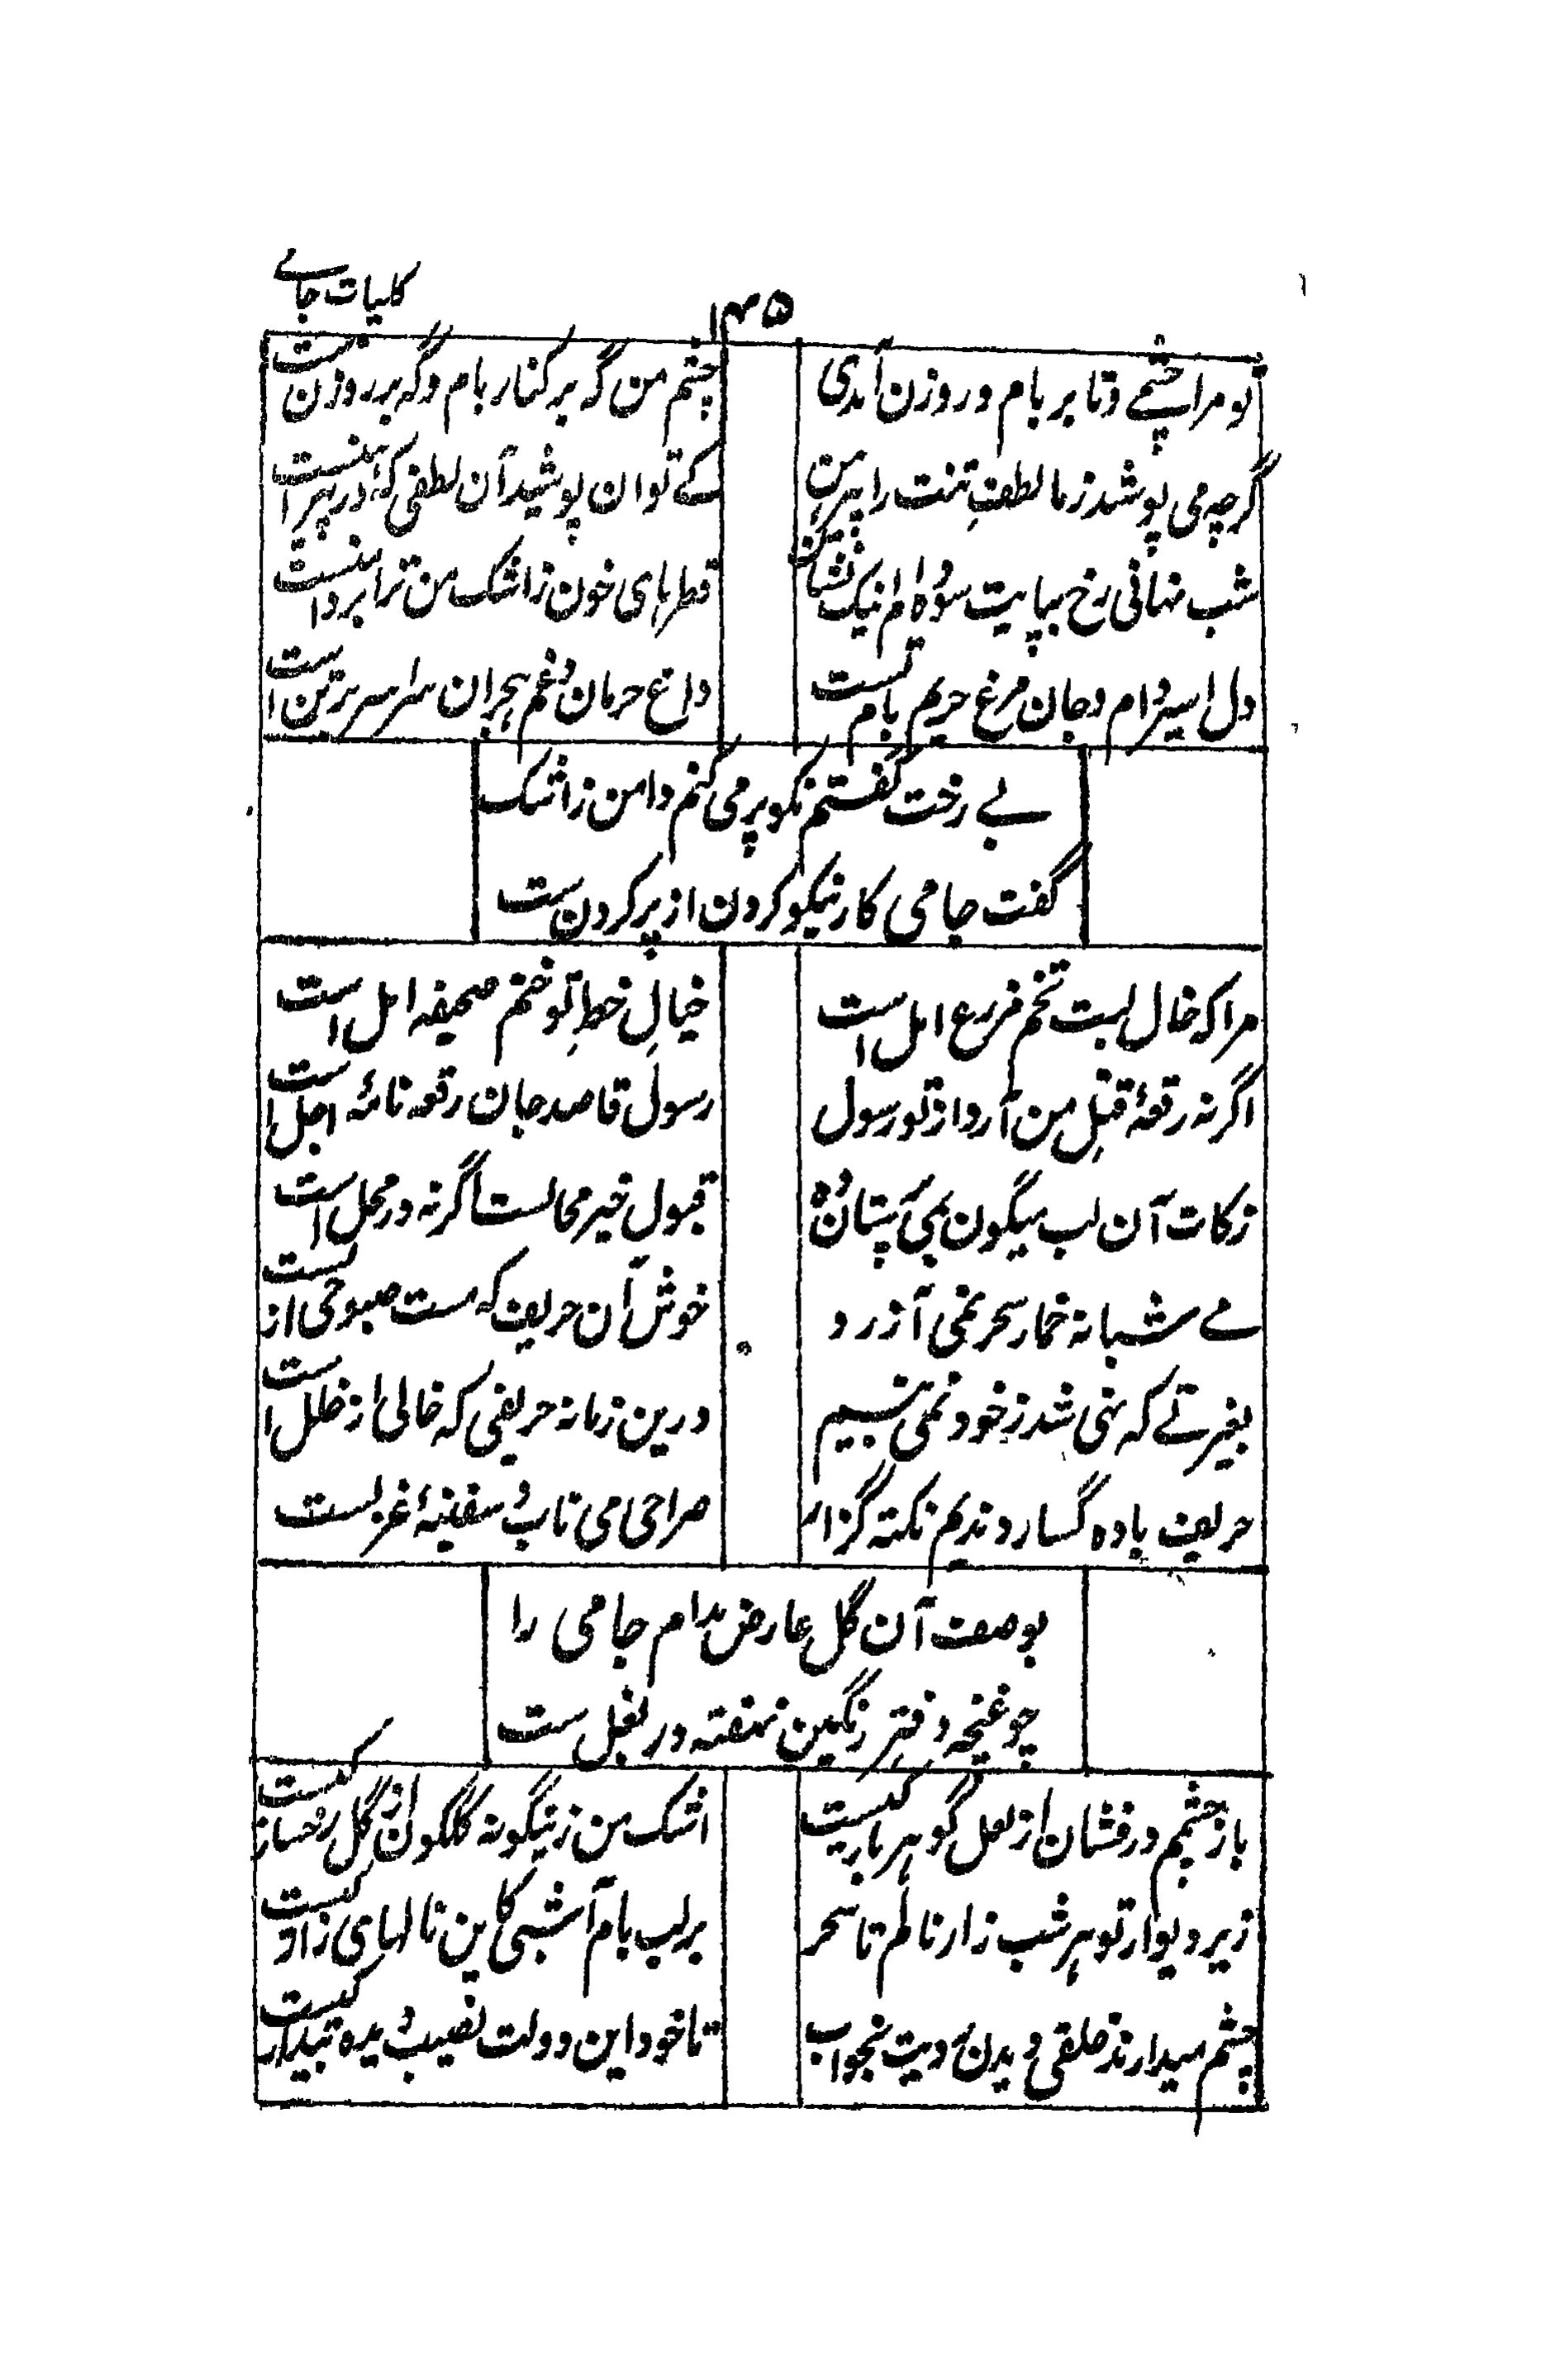 کلیات جامے
۱۴۵
تو مرا چشمے و تا بر بام و روزن آمدی
چشم من گہ بر کنار بام و گہ بر روزن ست
گرچہ می پوشد ز ما لطفِ تنت را پیرہن
کے توان پوشید آن لطفی کہ در پیراہنست
شب نہانی رخ بپایت سودہ ام اینک نشان
قطرہای خون ز اشک من ترا بر دامنست
دل اسیر دام و جان مرغ حریم بام تست
داغ حرمان و غم ہجران سراسر بر تن است
بے رخت گفتم نکو پر می کنم دامن ز اشک
گفت جامی کار نیکو کردن از پر کردن ست
مرا کہ خال لبت تخم مزرع امل است
خیالِ خطِ تو ختم صحیفہ امل است
اگر نہ رقعۂ قتلِ من آرد از تو رسول
رسول قاصد جان رقعہ نامۂ اجل است
زکات آن لب میگون بمی پرستان دہ
قبولِ خیر محالست اگر نہ در محل است
مے شبانہ خمار سحر نمی آزرد
خوش آن حریف کہ مست صبوحی از لست
بغیر تے کہ شد ز خود نمی بینیم
درین زمانہ حریفی کہ خالی از خلل است
حریف بادہ گسار و ندیم نکتہ گزار
صراحی می ناب و سفینۂ غزلست
بوصف آن گل عارض مدام جامی را
چو غنچہ دفترِ رنگین نہفتہ در بغل ست
باز چشمم درفشان از لعل گوہر بار کیست
اشک من زینگونہ گلگون از گل رخسار کیست
زیر دیوار تو ہر شب زار نالم تا سحر
بر لب بام آ شبی کاین نالہای زار کیست
چشم میدارند خلقی دیدن رویت بخواب
تا خود این دولت نصیب دیدہ بیدار کیست